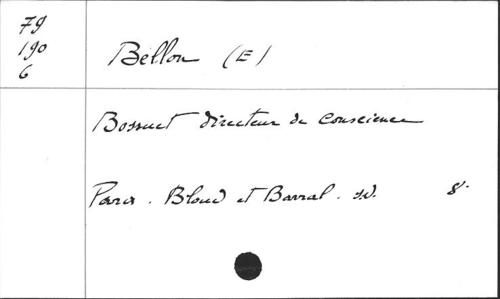 79
190
6
Bellon (E)
Bossuet directeur de conscience
Paris. Bloud et Barral. s.d. 8°